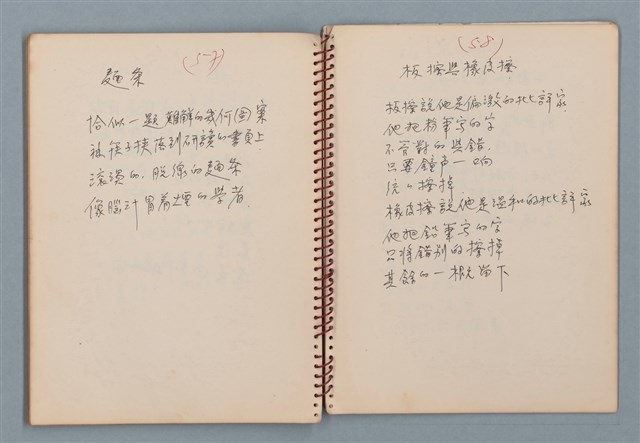 (5-7)
麵条
恰似一題難解的幾何图案
被筷子挾落到研讀的書頁上
滾燙的，脫線的麵条
像腦汁冒着煙的學者
(5-8)
板擦與橡皮擦
板擦說他是偏激的批評家
他把粉筆寫的字
不管對的與錯
只要鐘声一响
統々擦掉
橡皮擦說他是溫和的批評家
他把鉛筆寫的字
只將錯別的擦掉
其餘的一概留下